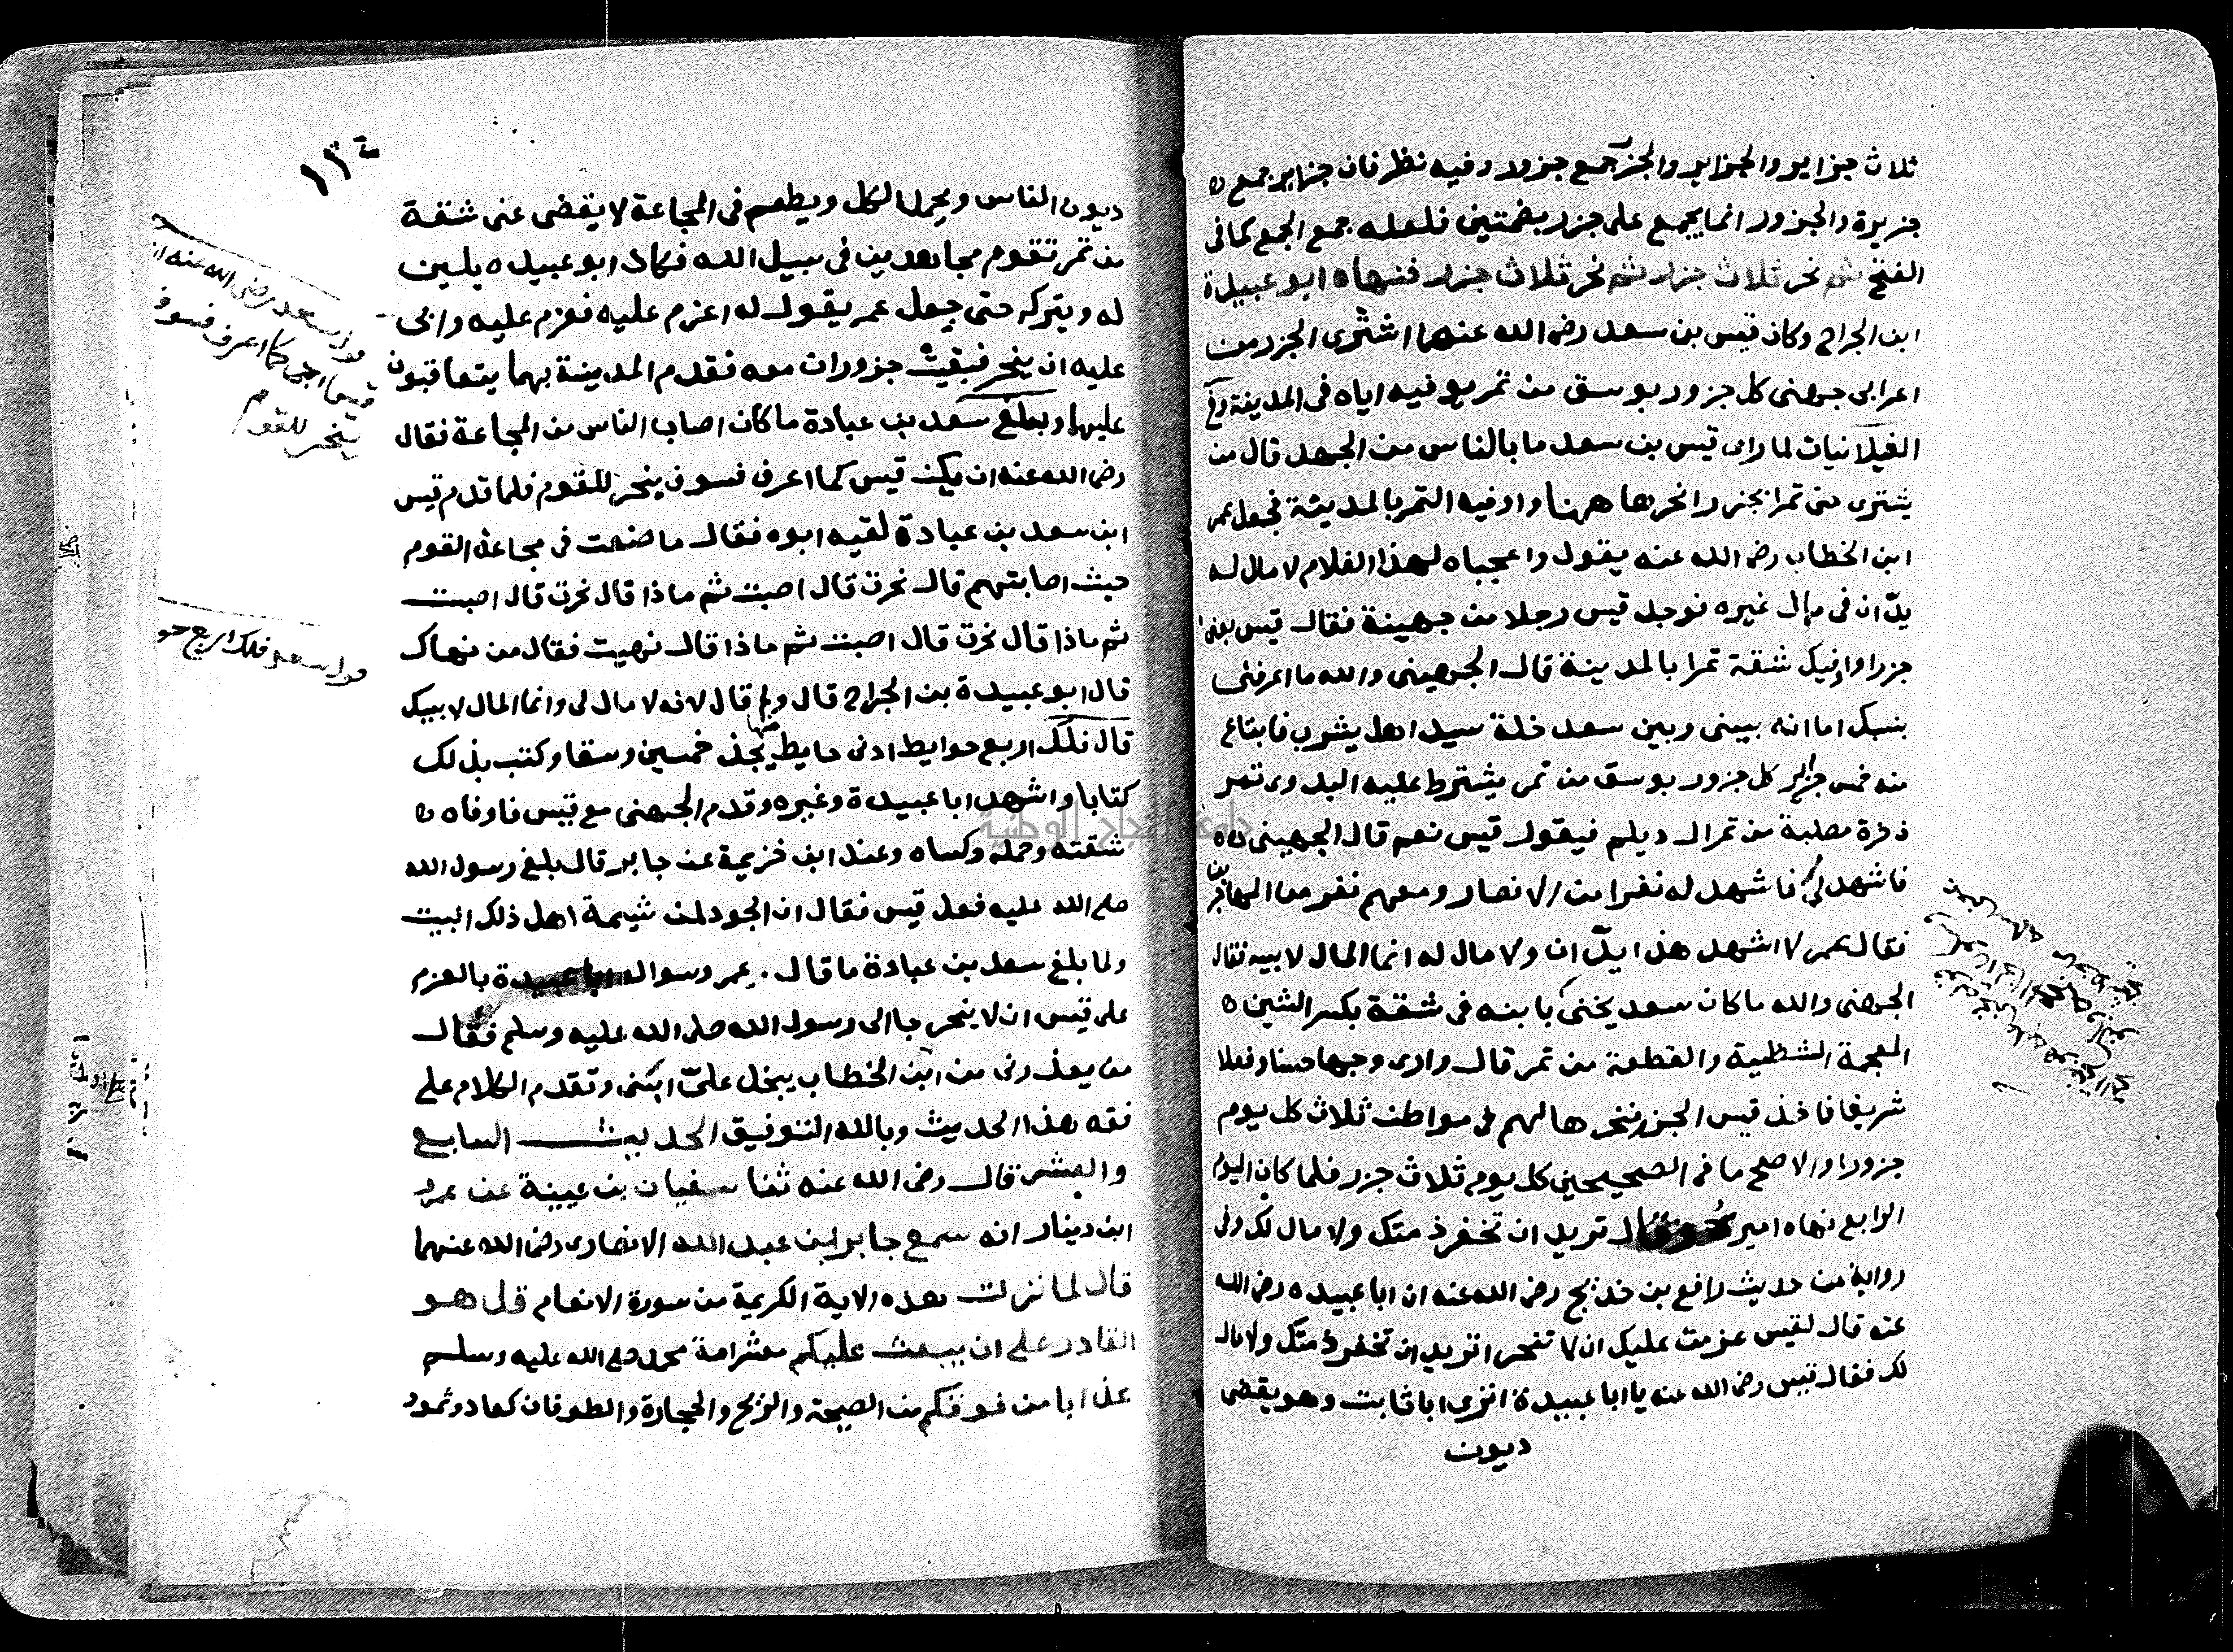 ثلاث جزاير والجزاير والجزر جمع جزور وفيه نظر فان جزاير جمع
جزيرة والجزور انما يجمع على جزر بضمتين فلعله جمع الجمع كما فى
الفتح ثم نحر ثلاث جزر ثم نحر ثلاث جزر فنهاه ابو عبيدة
ابن الجراح وكان قيس بن سعد رضى الله عنهما اشترى الجزر من
اعرابى جهنى كل جزور بوسق من تمر يوفيه اياه فى المدينة وفى
الغيلانيات لما راى قيس بن سعد ما بالناس من الجهد قال من
يشترى منى تمرا بجزر انحرها ههنا واوفيه التمر بالمدينة فجعل عمر
ابن الخطاب رضى الله عنه يقول واعجباه لهذا الغلام لا مال له
يدّان فى مال غيره فوجد قيس رجلا من جهينة فقال قيس بعنى
جزرا واوفيك شقة تمرا بالمدينة قال الجهينى والله ما اعرفنى
بنسبك اما انه بينى وبين سعد خلة سيد اهل يثرب فابتاع
منه خمس جزاير كل جزور بوسق من تمر يشترط عليه البدوى تمر
ذخرة مصلبة من تمر ال ديلم فيقول قيس نعم قال الجهينى
فاشهد لى فاشهد له نفرا من الانصار ومعهم نفر من المهاجرين
فقال عمر لا اشهد هذا يدّان ولا مال له انما المال لابيه فقال
الجهنى والله ما كان سعد يخنى بابنه فى شقة بكسر الشين
المعجمة الشظية والقطعة من تمر قال وارى وجها حسنا وفعلا
شريفا فاخذ قيس الجزر فنحرها لهم فى مواطن ثلاث كل يوم
جزورا والاصح ما فى الصحيحين كل يوم ثلاث جزر فلما كان اليوم
الرابع نهاه اميره وقال تريد ان تخفر ذمتك ولا مال لك وفى
رواية من حديث رافع بن خديج رضى الله عنه ان ابا عبيده رضى الله
عنه قال لقيس عزمت عليك ان لا تنحر اتريد ان تخفر ذمتك ولا مال
لك فقال قيس رضى الله عنه يا ابا عبيدة اترى ابا ثابت وهو يقضى
ديون
١٣٤
ديون الناس ويحمل الكل ويطعم فى المجاعة لا يقضى عنى شقة
من تمر تقوم مجاهدين فى سبيل الله فكاد ابو عبيده يلين
له ويتركه حتى جعل عمر يقول له اعزم عليه فعزم عليه وابى
عليه ان ينحر فبقيت جزوران معه فقدم المدينة بهما يتعاقبون
عليها وبلغ سعد بن عبادة ما كان اصاب الناس من المجاعة فقال
رضى الله عنه ان يكن قيس كما اعرف فسوف ينحر للقوم فلما قدم قيس
ابن سعد بن عبادة لقيه ابوه فقال ما صنعت فى مجاعة القوم
حيث اصابتهم قال نحرت قال اصبت ثم ماذا قال نحرت قال اصبت
ثم ماذا قال نحرت قال اصبت ثم ماذا قال نهيت فقال من نهاك
قال ابو عبيدة بن الجراح قال ولم قال لانه لا مال لى وانما المال لابيك
قال فلك اربع حوايط ادنى حايط يجذ خمسين وسقا وكتب بذلك
كتابا واشهد ابا عبيدة وغيره وقدم الجهنى مع قيس فاوفاه
شقته وحمله وكساه وعند ابن خزيمة عن جابر قال بلغ رسول الله
صلى الله عليه فعل قيس فقال ان الجود لمن شيمة اهل ذلك البيت
ولما بلغ سعد بن عبادة ما قال عمر وسواله ابا عبيدة بالعزم
على قيس ان لا ينحر جا الى رسول الله صلى الله عليه وسلم فقال
من يعذرنى من ابن الخطاب يبخل علىّ ابنى وتقدم الكلام على
فقه هذا الحديث وبالله التوفيق الحديث السابع
والعشر قال رضى الله عنه ثنا سفيان بن عيينة عن عمرو
ابن دينار انه سمع جابر ابن عبد الله الانصارى رضى الله عنهما
قال لما نزلت هذه الاية الكريمة من سورة الانعام قل هو
القادر على ان يبعث عليكم معشر امة محمد صلى الله عليه وسلم
عذابا من فوقكم من الصيحة والريح والحجارة والطوفان كعاد وثمود
قول سعد رضى الله عنه ان
قيسا كما اعرف فسوف
ينحر للقوم
قول سعد فلك اربع حو